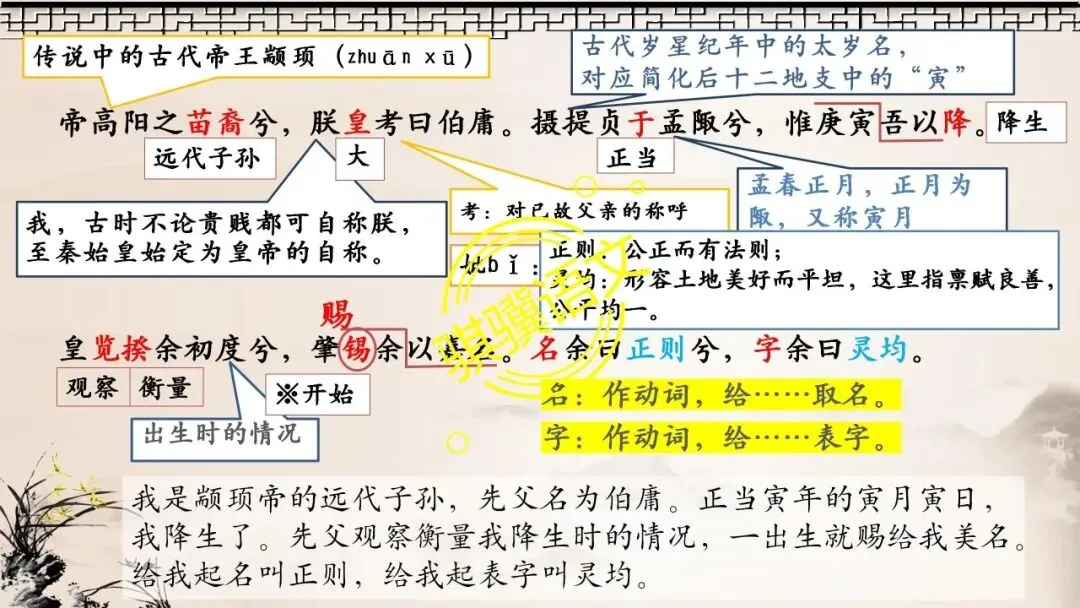 传说中的古代帝王颛顼（zhuān xū）
古代岁星纪年中的太岁名，
对应简化后十二地支中的“寅”
帝高阳之苗裔兮，朕皇考曰伯庸。摄提贞于孟陬兮，惟庚寅吾以降。
降生
远代子孙
大
正当
我，古时不论贵贱都可自称朕，
至秦始皇始定为皇帝的自称。
考：对已故父亲的称呼
孟春正月，正月为
陬，又称寅月
妣bǐ：
正则：公正而有法则；
灵均：形容土地美好而平坦，这里指禀赋良善，
公平均一。
骐骥语文
赐
皇览揆余初度兮，肇锡余以嘉名。名余曰正则兮，字余曰灵均。
观察
衡量
※开始
出生时的情况
名：作动词，给……取名。
字：作动词，给……表字。
我是颛顼帝的远代子孙，先父名为伯庸。正当寅年的寅月寅日，
我降生了。先父观察衡量我降生时的情况，一出生就赐给我美名。
给我起名叫正则，给我起表字叫灵均。